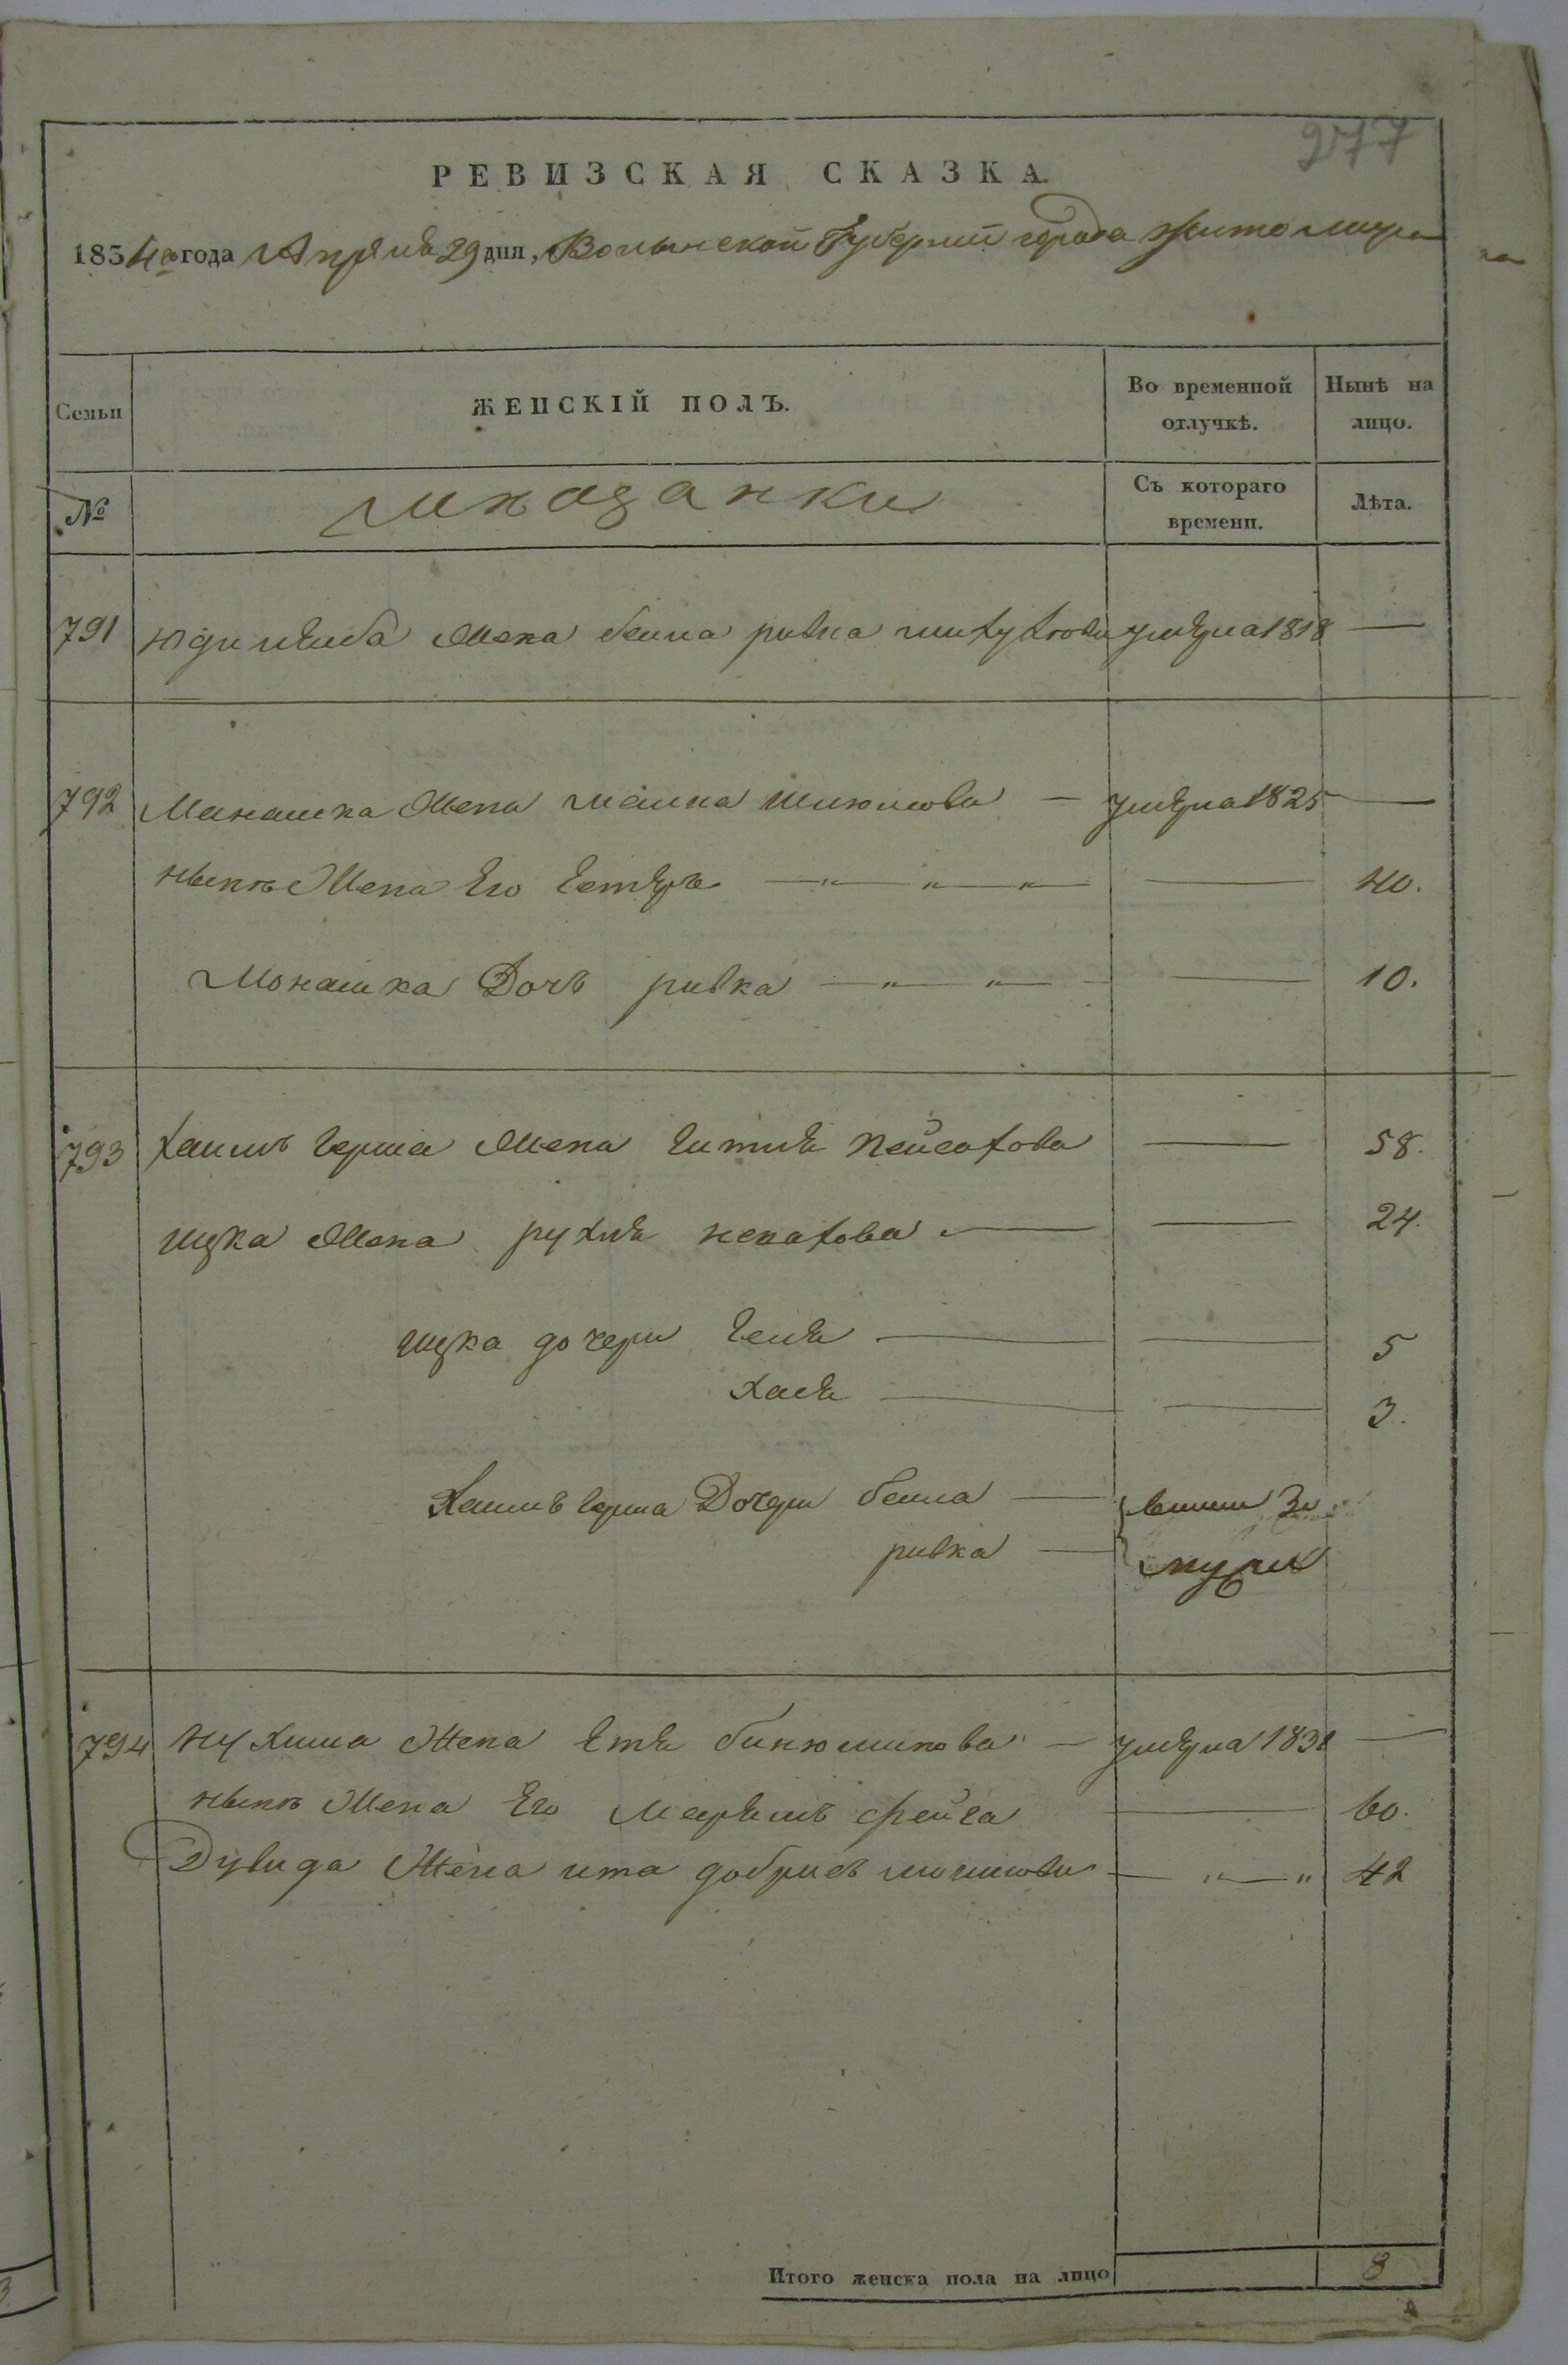 277
РЕВИЗСКАЯ СКАЗКА.
1834го года Апреля 29 дня, Волынской Губернии города Житомира
Семьи
ЖЕНСКІЙ ПОЛЪ.
Во временной отлучкѣ.
Нынѣ на лицо.
№
Мещанки
Съ котораго времени.
Лѣта.
791 Жена бейла ривка умерла 1818 —
792 Манашка Жена умерла 1825 —
нынѣ Жена Его Естеръ — " — " — " — — 40.
Монашка Дочь ривка — " — " — — 10.
793 Хаимъ Герша Жена Гитля Пейсахова — 58.
ицка Жена рухля — — 24.
ицка дочери Геня — — 5
Хася — — 3.
Хаимъ Герша Дочери бейла — вышли За
ривка — мужъ
794 Нухима Жена Етя бинюминова — умерла 1831 —
нынѣ Жена Его Марьямъ фейга — 60.
Дувида Жена ита добрись — " — " 42
Итого женска пола на лицо 8